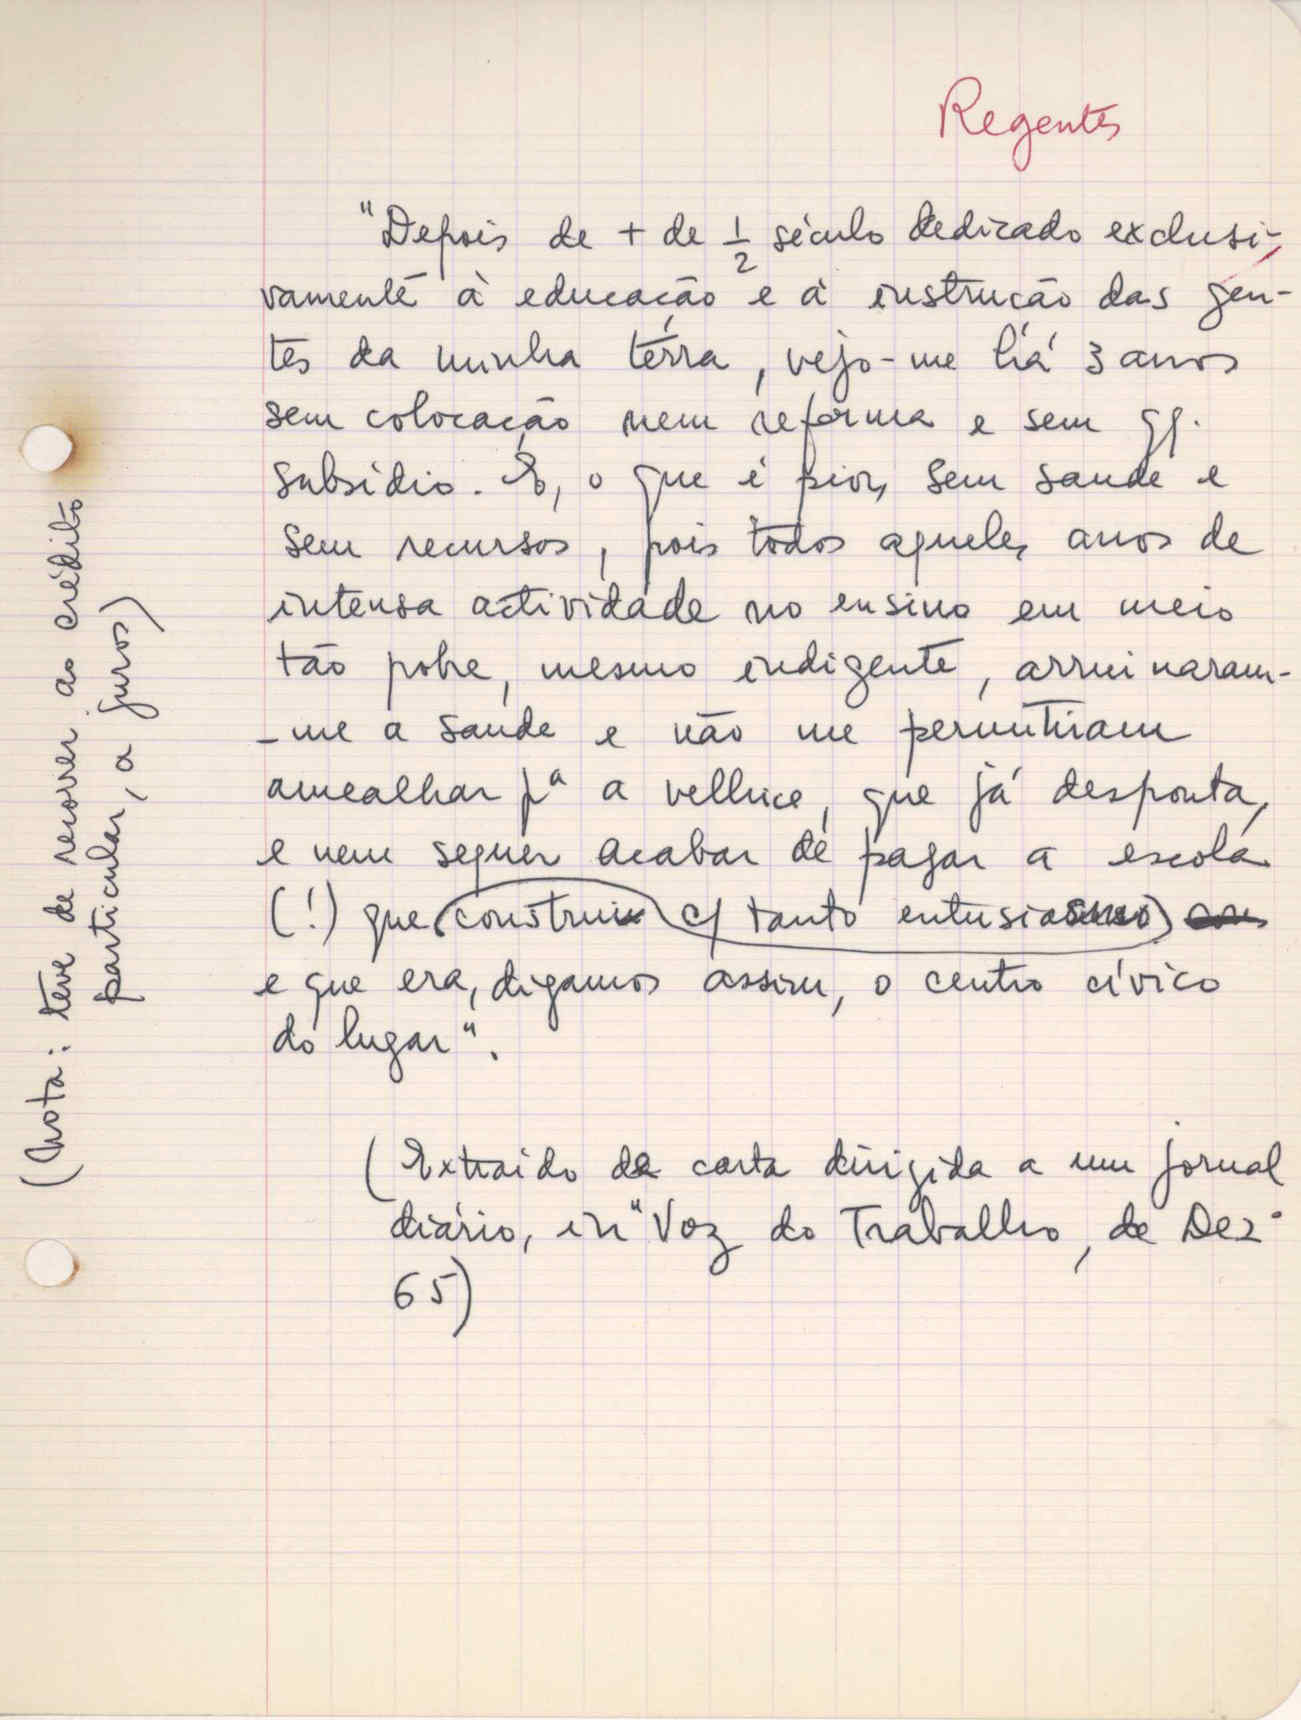 Regentes
"Depois de + de 1/2 século dedicado exclusi-
vamente à educação e à instrução das gen-
tes da minha terra, vejo-me há 3 anos
sem colocação nem reforma e sem qq.
subsídio. E, o que é pior, sem saude e
sem recursos, pois todos aqueles anos de
intensa actividade no ensino em meio
tão pobre, mesmo indigente, arruinaram-
-me a saude e não me permitiam
amealhar pª a velhice, que já desponta,
e nem sequer acabar de pagar a escola
(!) que construi c/ tanto entusiasmo
e que era, digamos assim, o centro cívico
do lugar".
(Extraido de carta dirigida a um jornal
diário, in "Voz do Trabalho, de Dez.
65)
(Nota: teve de recorrer ao crédito
particular, a juros)